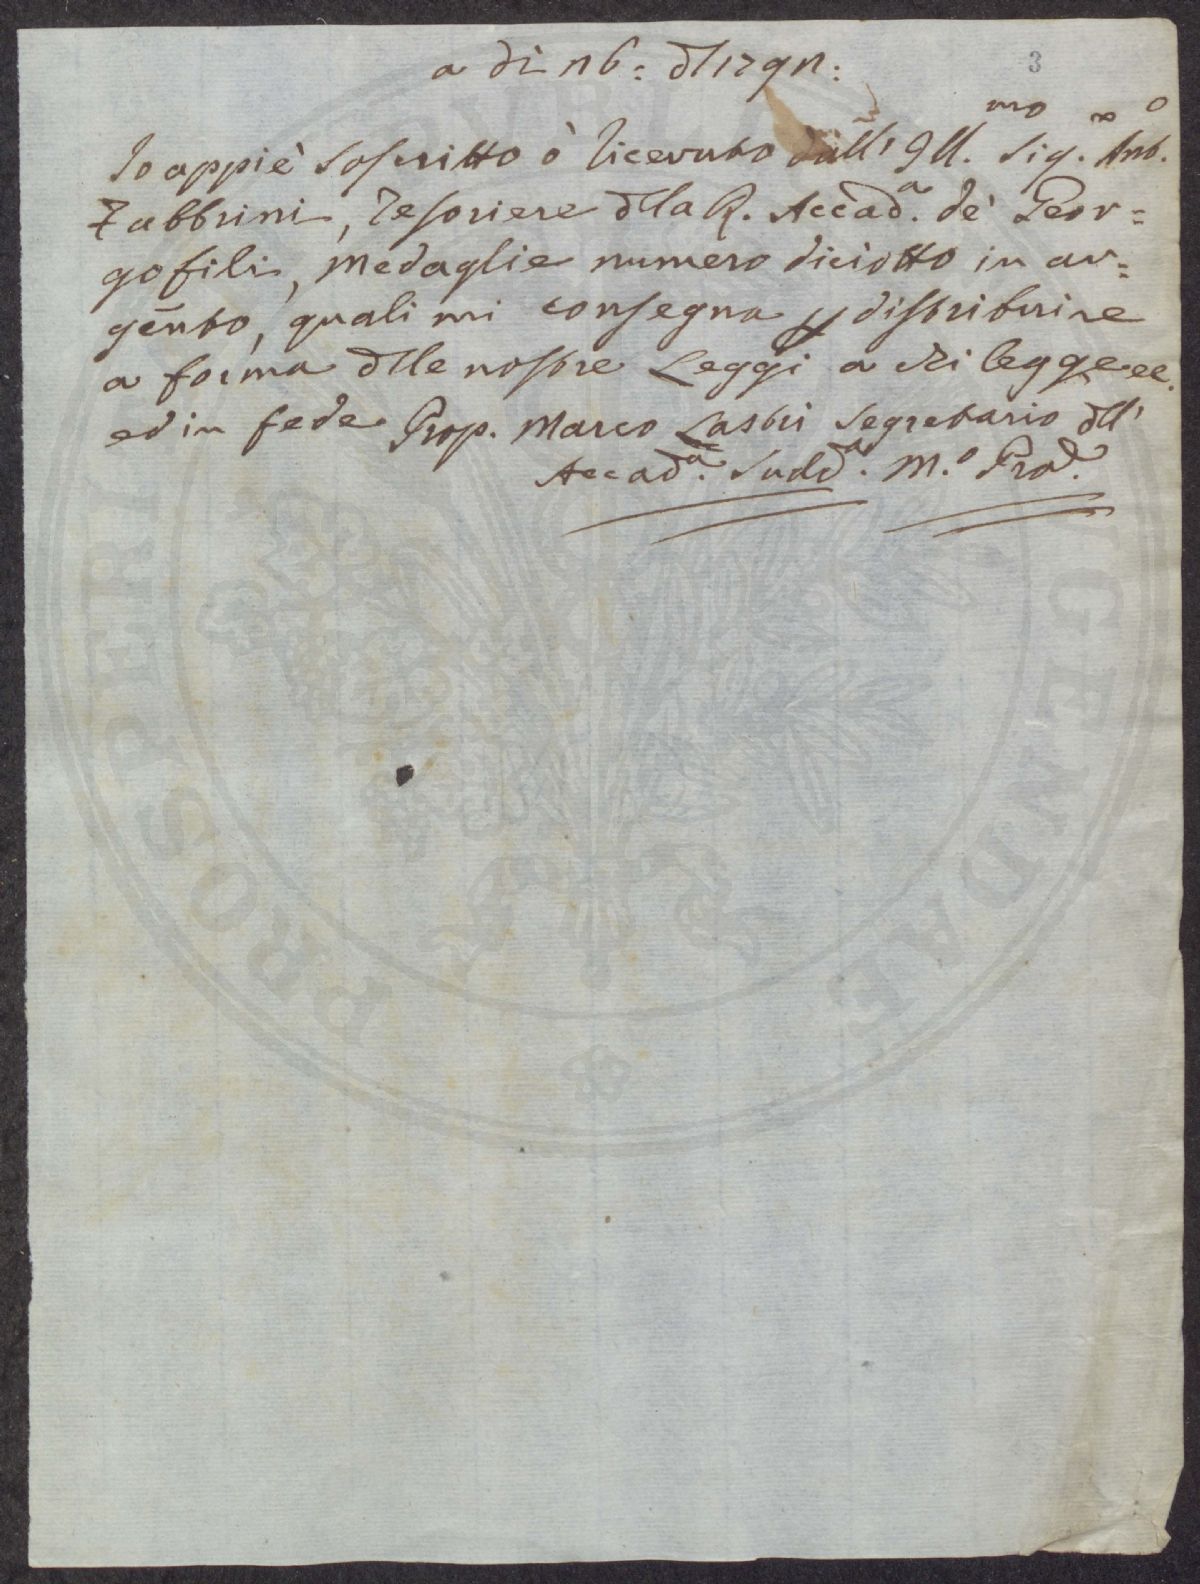 a di 16: dl 1791:
3
Io appiè soscritto ò ricevuto dall'Ill.mo Sig. Ant.o
Fabbrini, Tesoriere dla R. Accad.a de' Geor=
gofili, Medaglie numero diciotto in ar=
gento, quali mi consegna p distribuire
a forma dlle nostre Leggi a chi legge ec.
ed in fede Prop. Marco Lastri Segretario dll'
Accad.a Sudd.a M.o Pro.
PROSPERITATI PUBLICAE AUGENDAE